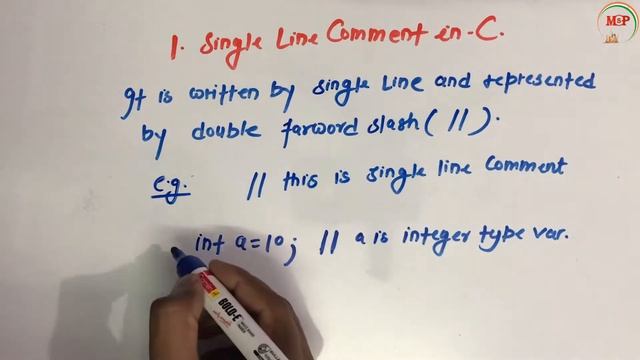 M&P
1. Single Line Comment in C.
It is written by single line and represented
by double farword slash ( // ).
e.g. // this is single line comment
int a=10; // a is integer type var.
BOLD-E